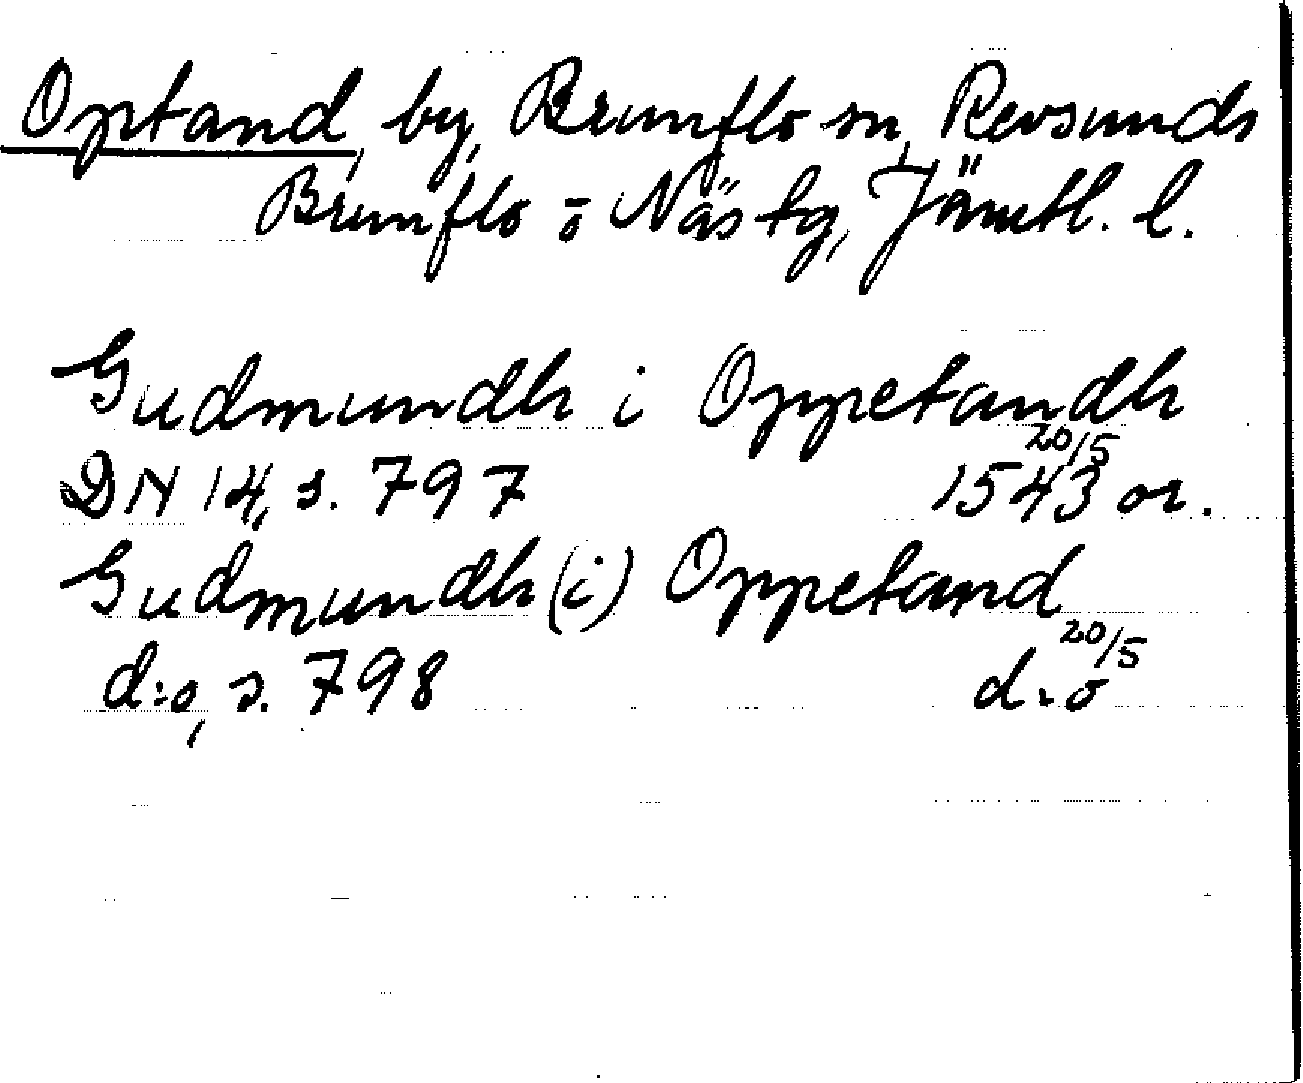 Optand, by, Brunflo sn, Revsunds
Brunflo o Näs tg, Jämtl. l.
Gudmundh i Oppetandh
DN 14, s. 797 20/5 1543 or.
Gudmundh (i) Oppetand
d:o, s. 798 20/5 d:o